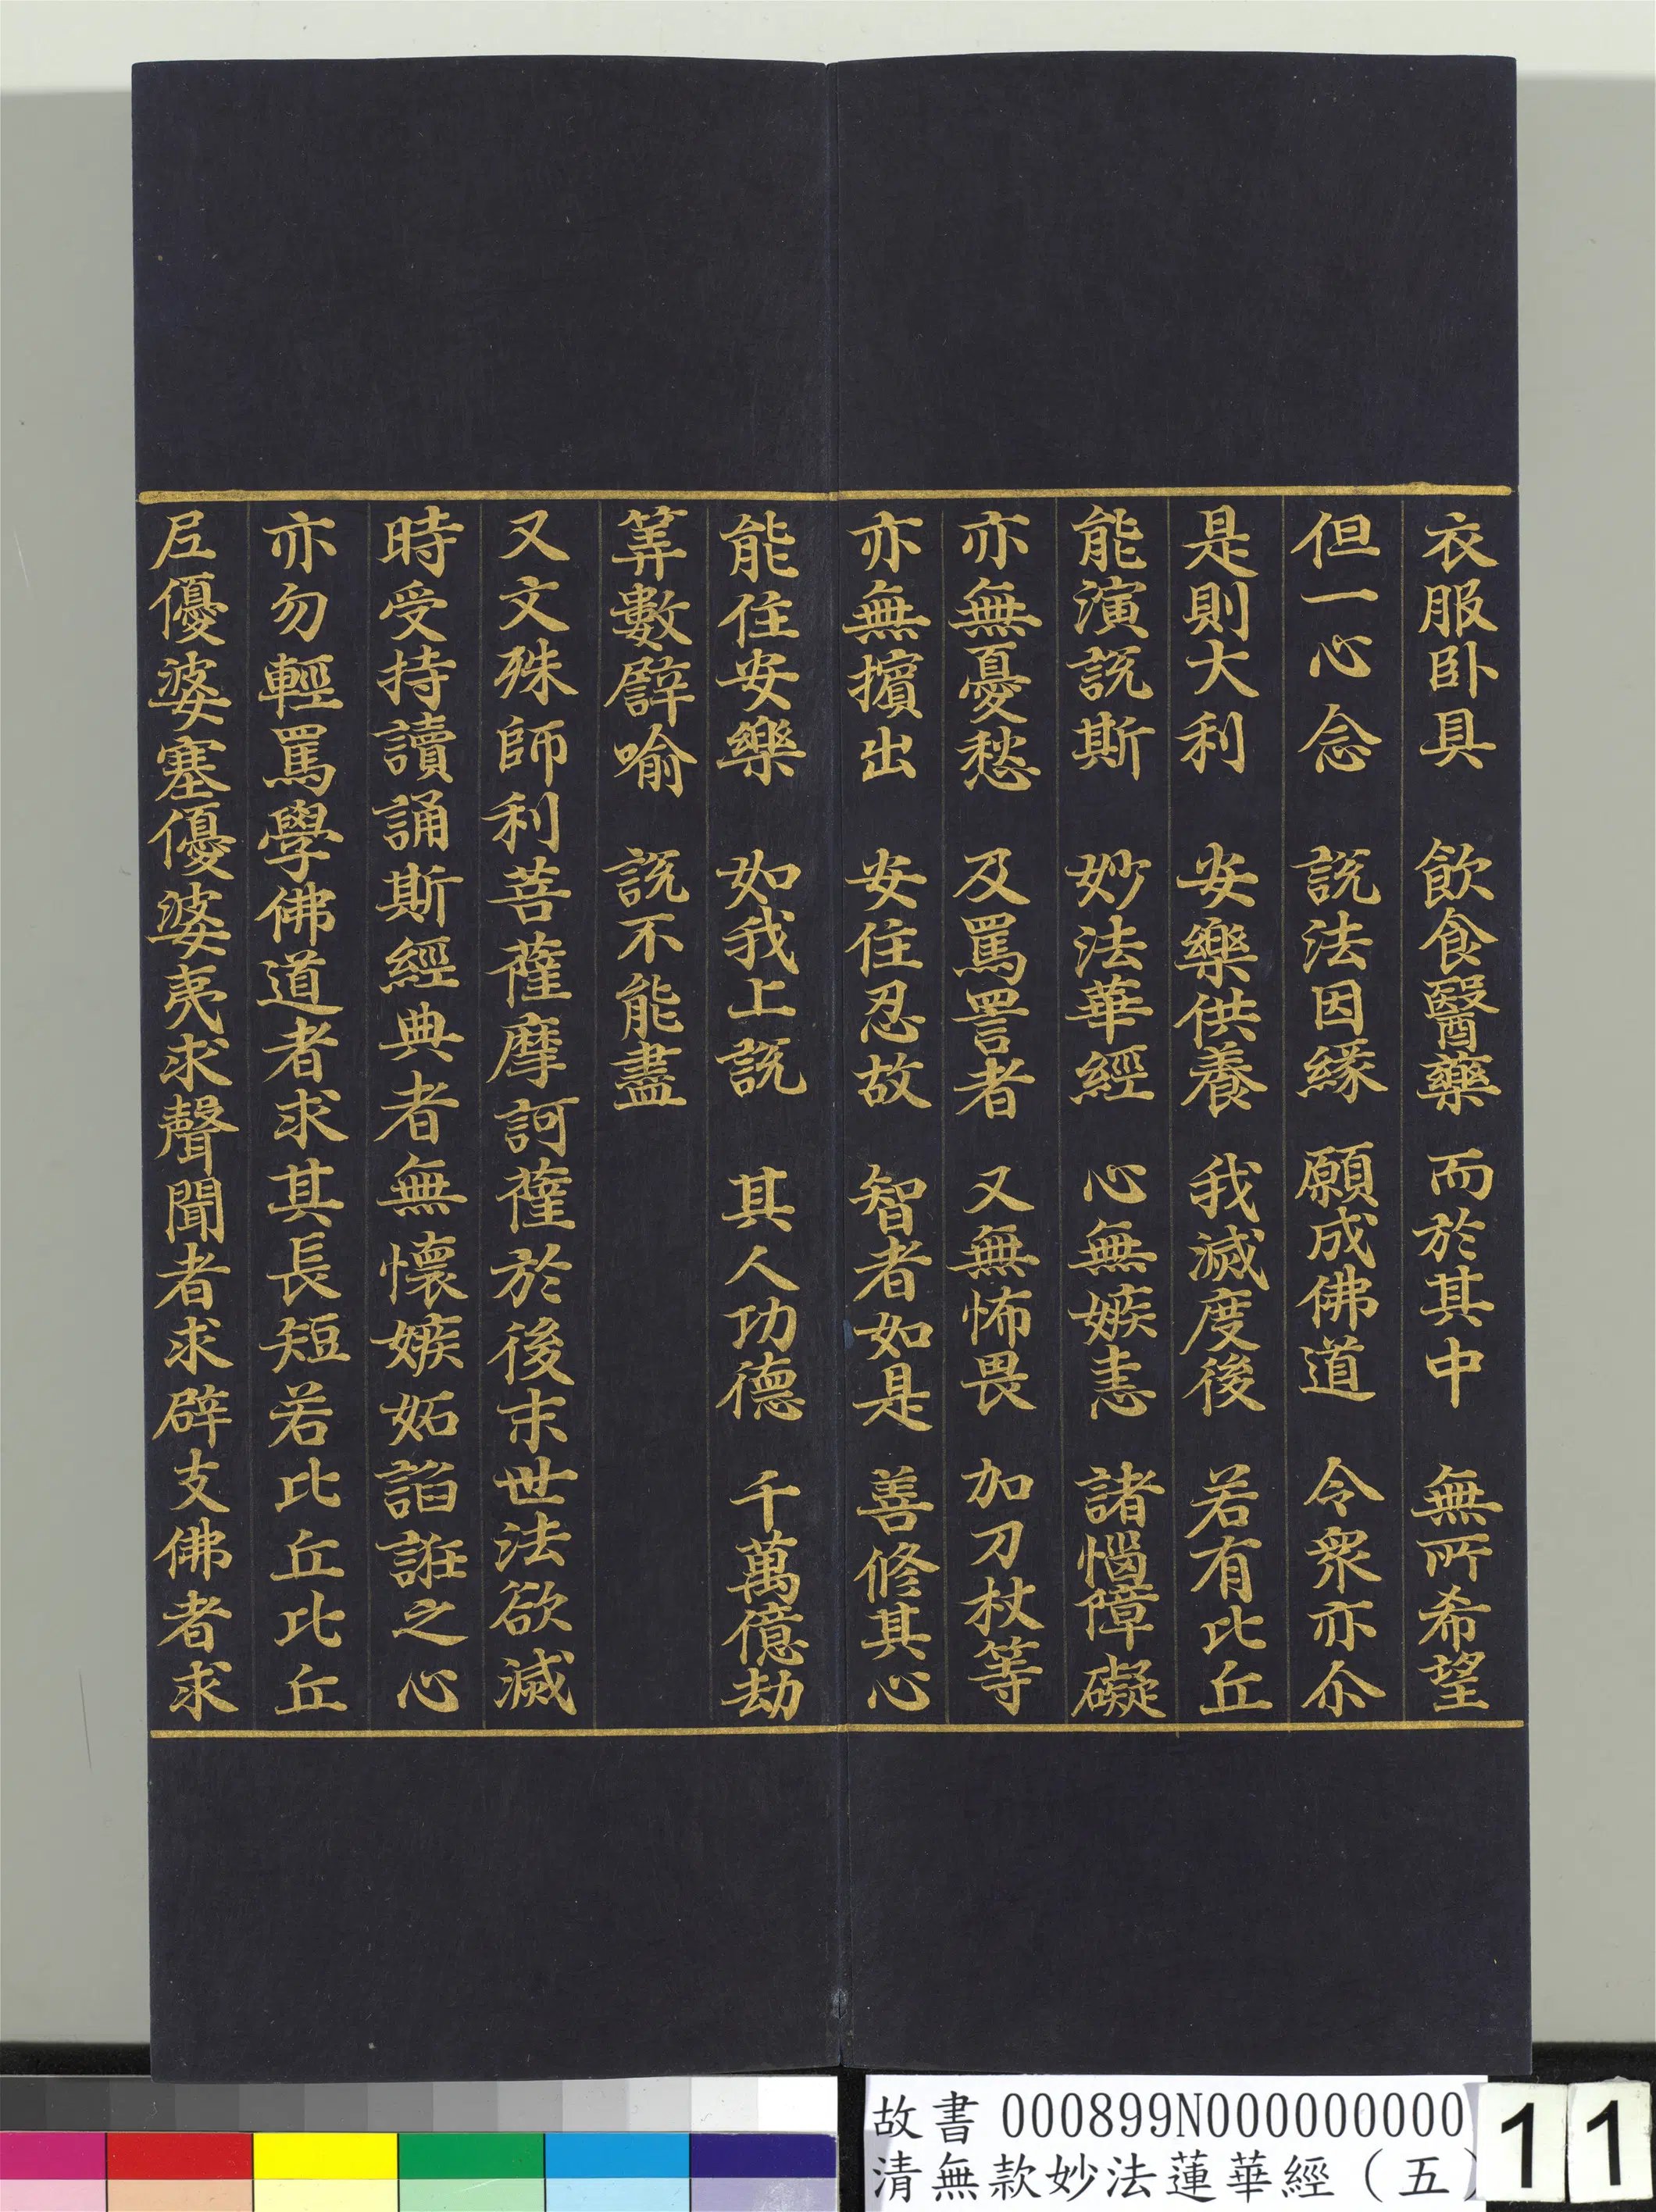 衣服卧具　飲食醫藥　而於其中　無所希望
但一心念　說法因緣　願成佛道　令衆亦尒
是則大利　安樂供養　我滅度後　若有比丘
能演說斯　妙法華經　心無嫉恚　諸惱障礙
亦無憂愁　及罵詈者　又無怖畏　加刀杖等
亦無擯出　安住忍故　智者如是　善修其心
能住安樂　如我上說　其人功德　千萬億劫
筭數譬喻　說不能盡
又文殊師利菩薩摩訶薩於後末世法欲滅
時受持讀誦斯經典者無懷嫉妬諂誑之心
亦勿輕罵學佛道者求其長短若比丘比丘
尼優婆塞優婆夷求聲聞者求辟支佛者求
故書 000899N000000000
清無款妙法蓮華經（五）
11